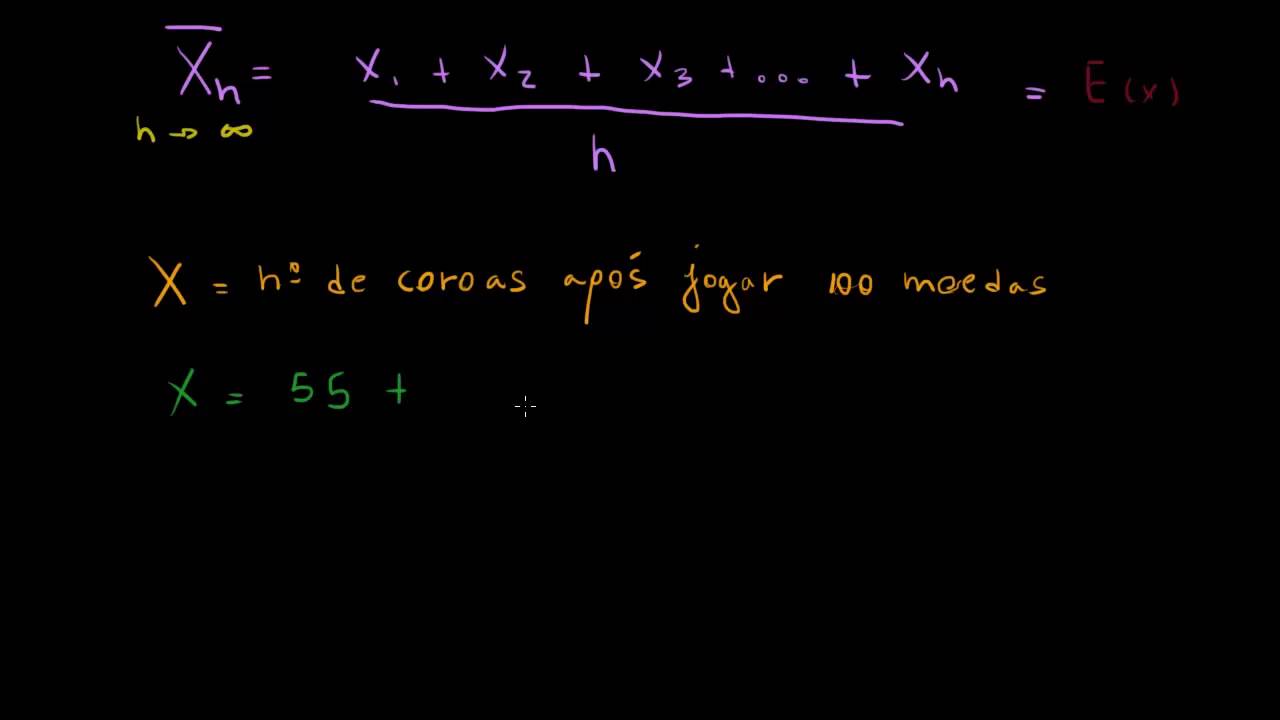 X̅n = x1 + x2 + x3 + ... + xn = E(x)
n → ∞
n
X = nº de coroas após jogar 100 moedas
X = 55 +